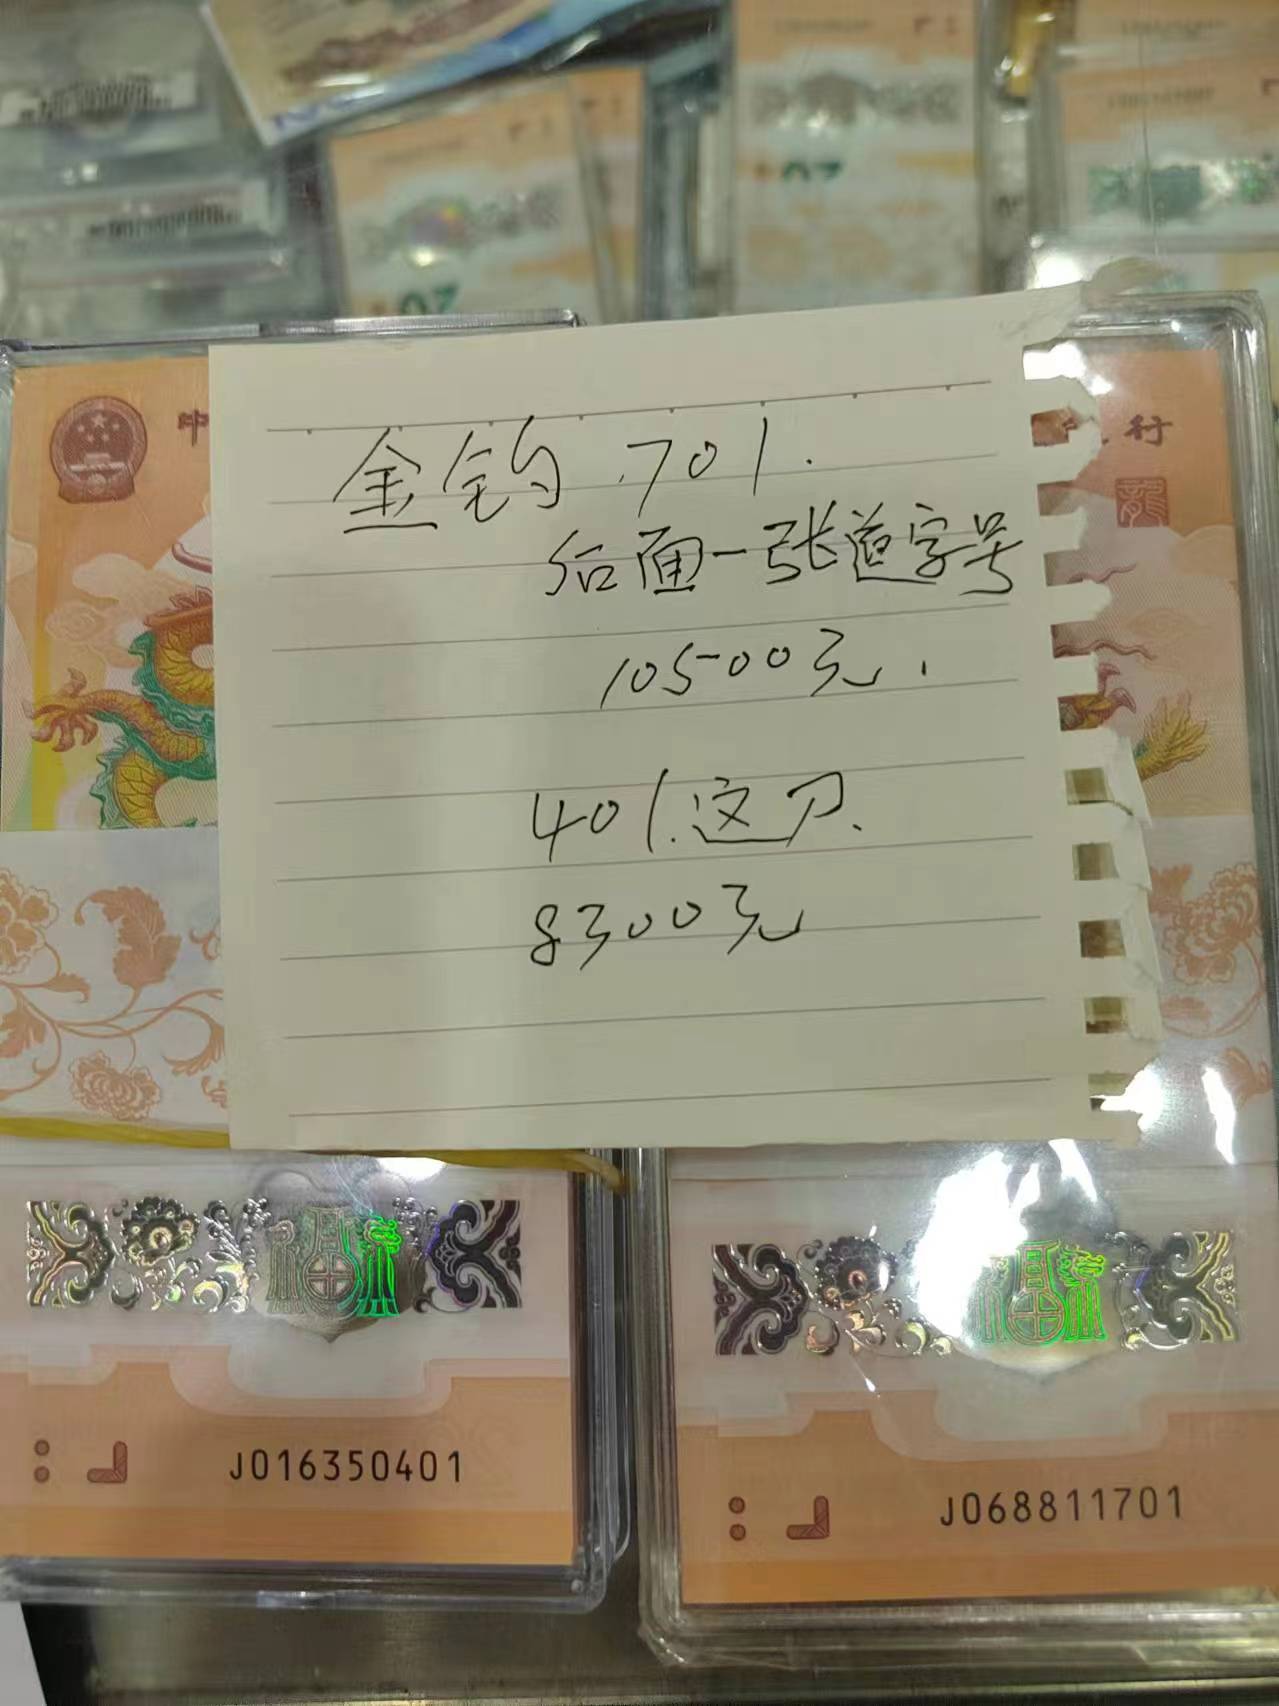 中
行
金钩.701.
后面一张道字号
10500元.
401.这刀.
8300元
J016350401
J068811701